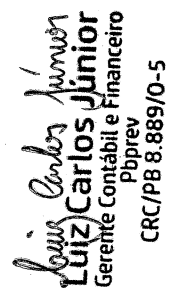 Luiz Carlos Júnior
Luiz Carlos Júnior
Gerente Contábil e Financeiro
Pbprev
CRC/PB 8.889/O-5